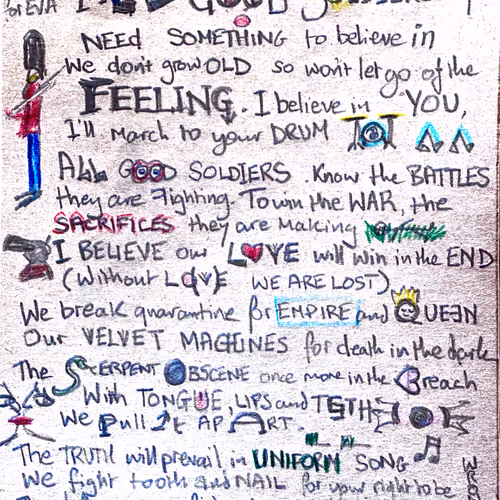 for EVA I GOOD
NEED SOMETHING to believe in
We don't grow OLD so won't let go of the
FEELING. I believe in YOU,
I'll march to your DRUM
ALL GOOD SOLDIERS. Know the BATTLES
they are Fighting. To win the WAR, the
SACRIFICES they are making
I BELIEVE our LOVE will win in the END
(Without LOVE WE ARE LOST)
We break quarantine for EMPIRE and QUEEN
Our VELVET MACHINES for death in the dark
The SERPENT OBSCENE once more in the Breach
With TONGUE, LIPS and TEETH
We Pull It APART.
The TRUTH will prevail in UNIFORM SONG
We fight tooth and NAIL for your right to be